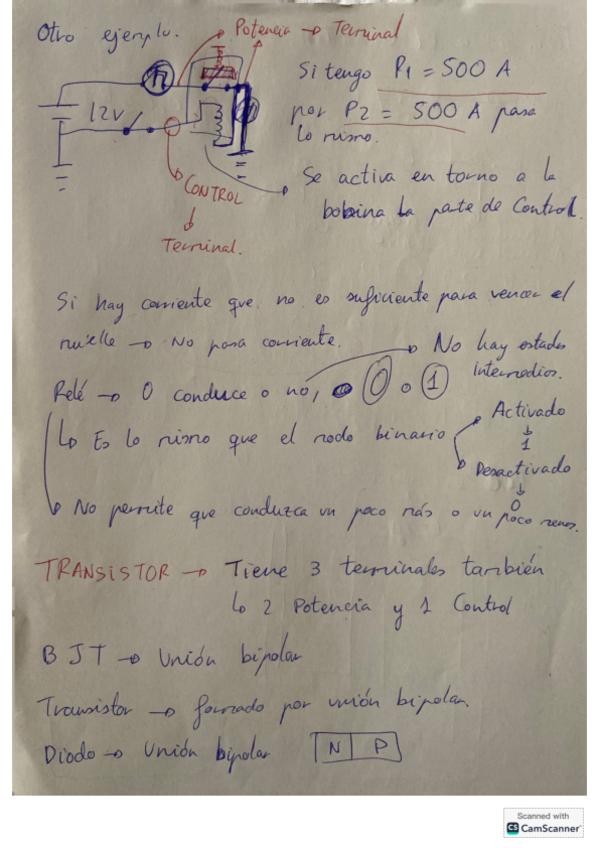 Otro ejemplo.
Potencia → Terminal
12V
Si tengo P1 = 500 A
por P2 = 500 A pasa
lo mismo.
CONTROL
↓
Terminal.
Se activa en torno a la
bobina la parte de Control.
Si hay corriente que no es suficiente para vencer el
muelle → No pasa corriente.
No hay estados
intermedios.
Relé → O conduce o no, 0 o 1
↳ Es lo mismo que el modo binario
Activado
↓
1
Desactivado
↓
0
No permite que conduzca un poco más o un poco menos.
TRANSISTOR → Tiene 3 terminales también
↳ 2 Potencia y 1 Control
BJT → Unión bipolar
Transistor → formado por unión bipolar.
Diodo → Unión bipolar N P
Scanned with
CS CamScanner